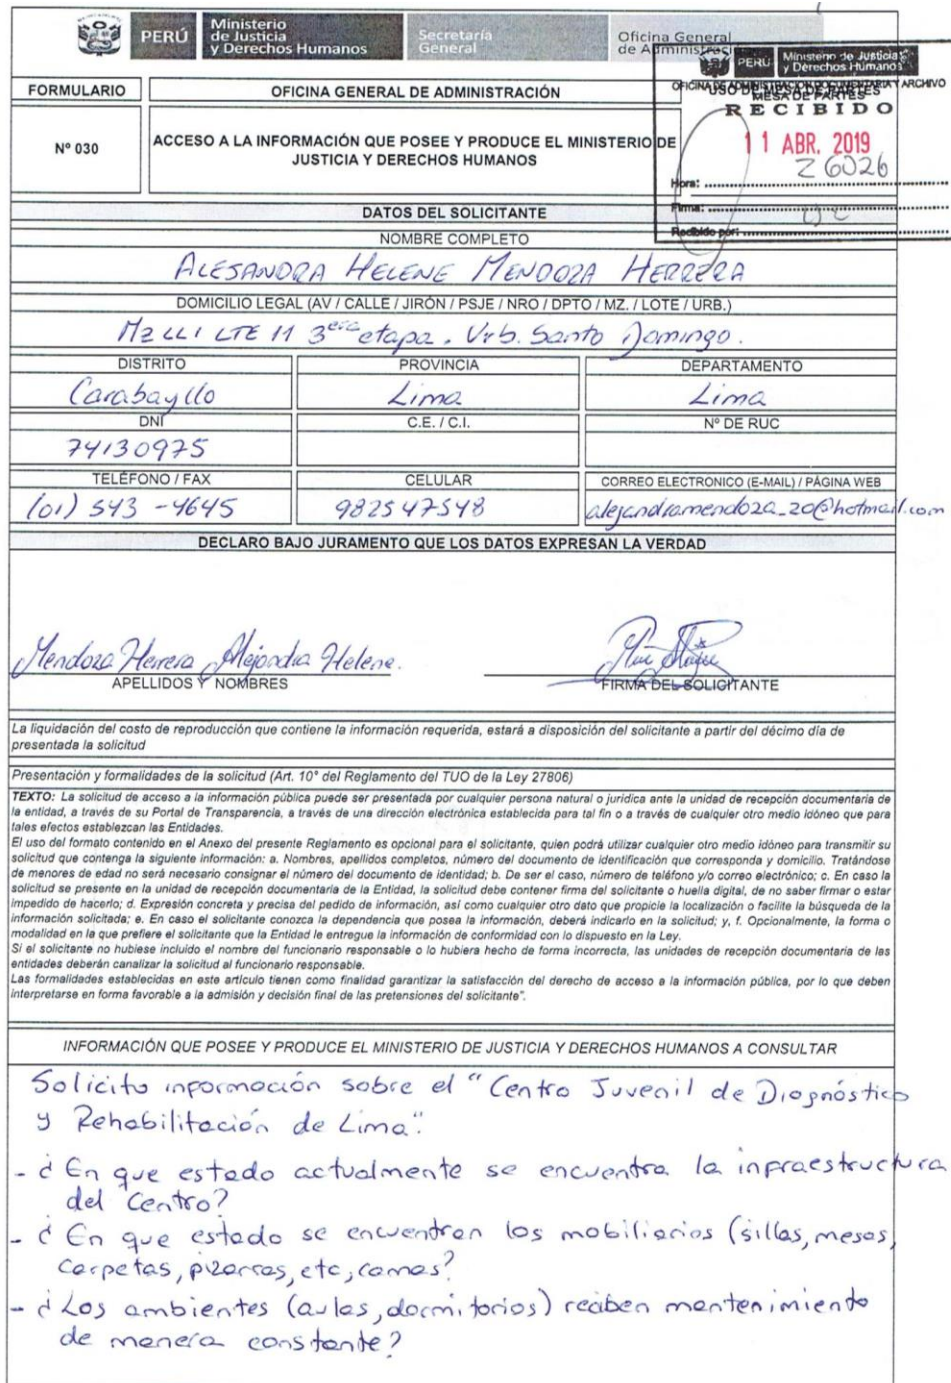 PERÚ
Ministerio
de Justicia
y Derechos Humanos
Secretaría
General
Oficina General
de Administración
PERÚ
Ministerio de Justicia
y Derechos Humanos
MESA DE PARTES
RECIBIDO
11 ABR. 2019
26026
Hora:
Firma:
Recibido por:
FORMULARIO
OFICINA GENERAL DE ADMINISTRACIÓN
USO DE MESA DE PARTES
Nº 030
ACCESO A LA INFORMACIÓN QUE POSEE Y PRODUCE EL MINISTERIO DE
JUSTICIA Y DERECHOS HUMANOS
DATOS DEL SOLICITANTE
NOMBRE COMPLETO
ALEJANDRA HELENE MENDOZA HERRERA
DOMICILIO LEGAL (AV / CALLE / JIRÓN / PSJE / NRO / DPTO / MZ. / LOTE / URB.)
Mz LL1 LTE 11 3era etapa. Urb. Santo Domingo.
DISTRITO PROVINCIA DEPARTAMENTO
Carabayllo Lima Lima
DNI C.E. / C.I. Nº DE RUC
74130975
TELÉFONO / FAX CELULAR CORREO ELECTRONICO (E-MAIL) / PÁGINA WEB
(01) 543 -4645 982547548 alejandramendoza_20@hotmail.com
DECLARO BAJO JURAMENTO QUE LOS DATOS EXPRESAN LA VERDAD
Mendoza Herrera Alejandra Helene.
APELLIDOS Y NOMBRES FIRMA DEL SOLICITANTE
La liquidación del costo de reproducción que contiene la información requerida, estará a disposición del solicitante a partir del décimo día de
presentada la solicitud
Presentación y formalidades de la solicitud (Art. 10° del Reglamento del TUO de la Ley 27806)
TEXTO: La solicitud de acceso a la información pública puede ser presentada por cualquier persona natural o jurídica ante la unidad de recepción documentaria de
la entidad, a través de su Portal de Transparencia, a través de una dirección electrónica establecida para tal fin o a través de cualquier otro medio idóneo que para
tales efectos establezcan las Entidades.
El uso del formato contenido en el Anexo del presente Reglamento es opcional para el solicitante, quien podrá utilizar cualquier otro medio idóneo para transmitir su
solicitud que contenga la siguiente información: a. Nombres, apellidos completos, número del documento de identificación que corresponda y domicilio. Tratándose
de menores de edad no será necesario consignar el número del documento de identidad; b. De ser el caso, número de teléfono y/o correo electrónico; c. En caso la
solicitud se presente en la unidad de recepción documentaria de la Entidad, la solicitud debe contener firma del solicitante o huella digital, de no saber firmar o estar
impedido de hacerlo; d. Expresión concreta y precisa del pedido de información, así como cualquier otro dato que propicie la localización o facilite la búsqueda de la
información solicitada; e. En caso el solicitante conozca la dependencia que posea la información, deberá indicarlo en la solicitud; y, f. Opcionalmente, la forma o
modalidad en la que prefiere el solicitante que la Entidad le entregue la información de conformidad con lo dispuesto en la Ley.
Si el solicitante no hubiese incluido el nombre del funcionario responsable o lo hubiera hecho de forma incorrecta, las unidades de recepción documentaria de las
entidades deberán canalizar la solicitud al funcionario responsable.
Las formalidades establecidas en este artículo tienen como finalidad garantizar la satisfacción del derecho de acceso a la información pública, por lo que deben
interpretarse en forma favorable a la admisión y decisión final de las pretensiones del solicitante".
INFORMACIÓN QUE POSEE Y PRODUCE EL MINISTERIO DE JUSTICIA Y DERECHOS HUMANOS A CONSULTAR
Solicito información sobre el "Centro Juvenil de Diagnóstico
y Rehabilitación de Lima".
- ¿En que estado actualmente se encuentra la infraestructura
del Centro?
- ¿En que estado se encuentran los mobiliarios (sillas, mesas,
carpetas, pizarras, etc, camas?
- ¿Los ambientes (aulas, dormitorios) reciben mantenimiento
de manera constante?